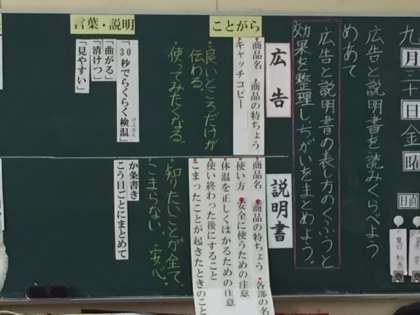 九月三十日金晴
広告と説明書を読みくらべよう
めあて
広告と説明書の表し方のくふうと
効果を整理し、ちがいをまとめよう。
広告
説明書
ことがら
・商品名 ・商品の特ちょう
・キャッチコピー
良いところだけが
伝わる。
使ってみたくなる。
・商品名 ・商品の特ちょう ・各部の名
・使い方 ・安全に使うための注意
・体温を正しくはかるための注意
・使い終わった後にすること
・こまったことが起きたときのこと
知りたいことが全て。
こまらない、安心
言葉・説明
「30秒でらくらく検温」
けんおん
「曲がる」
「清けつ」
「見やすい」
か条書き
こう目ごとにまとめて